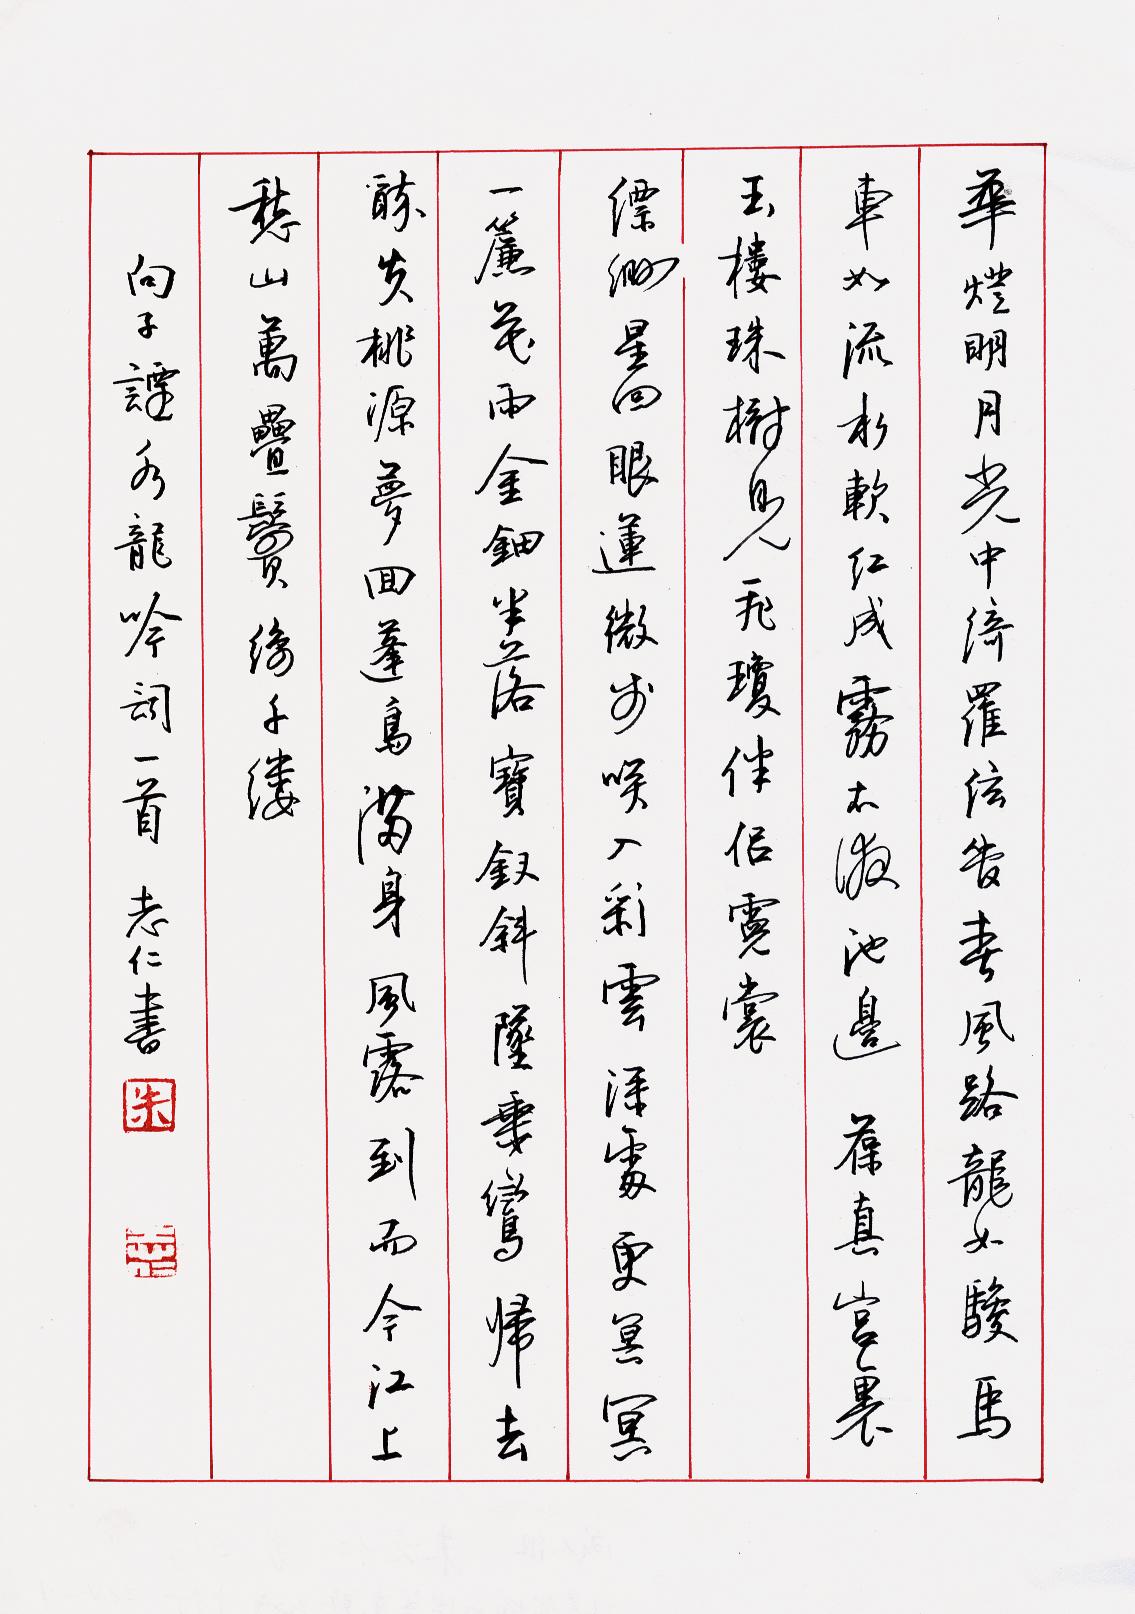 華燈明月光中綺羅弦管春風路龍如駿馬
車如流水軟紅成霧太液池邊 葆真宮裏
玉樓珠樹見飛瓊伴侶霓裳
縹緲星回眼蓮微步咲入彩雲深處更冥冥
一簾花雨金鈿半落寶釵斜墜乘鸞歸去
醉失桃源夢囬蓬島滿身風露到而今江上
愁山萬疊鬢絲千縷
向子諲水龍吟詞一首 志仁書
朱